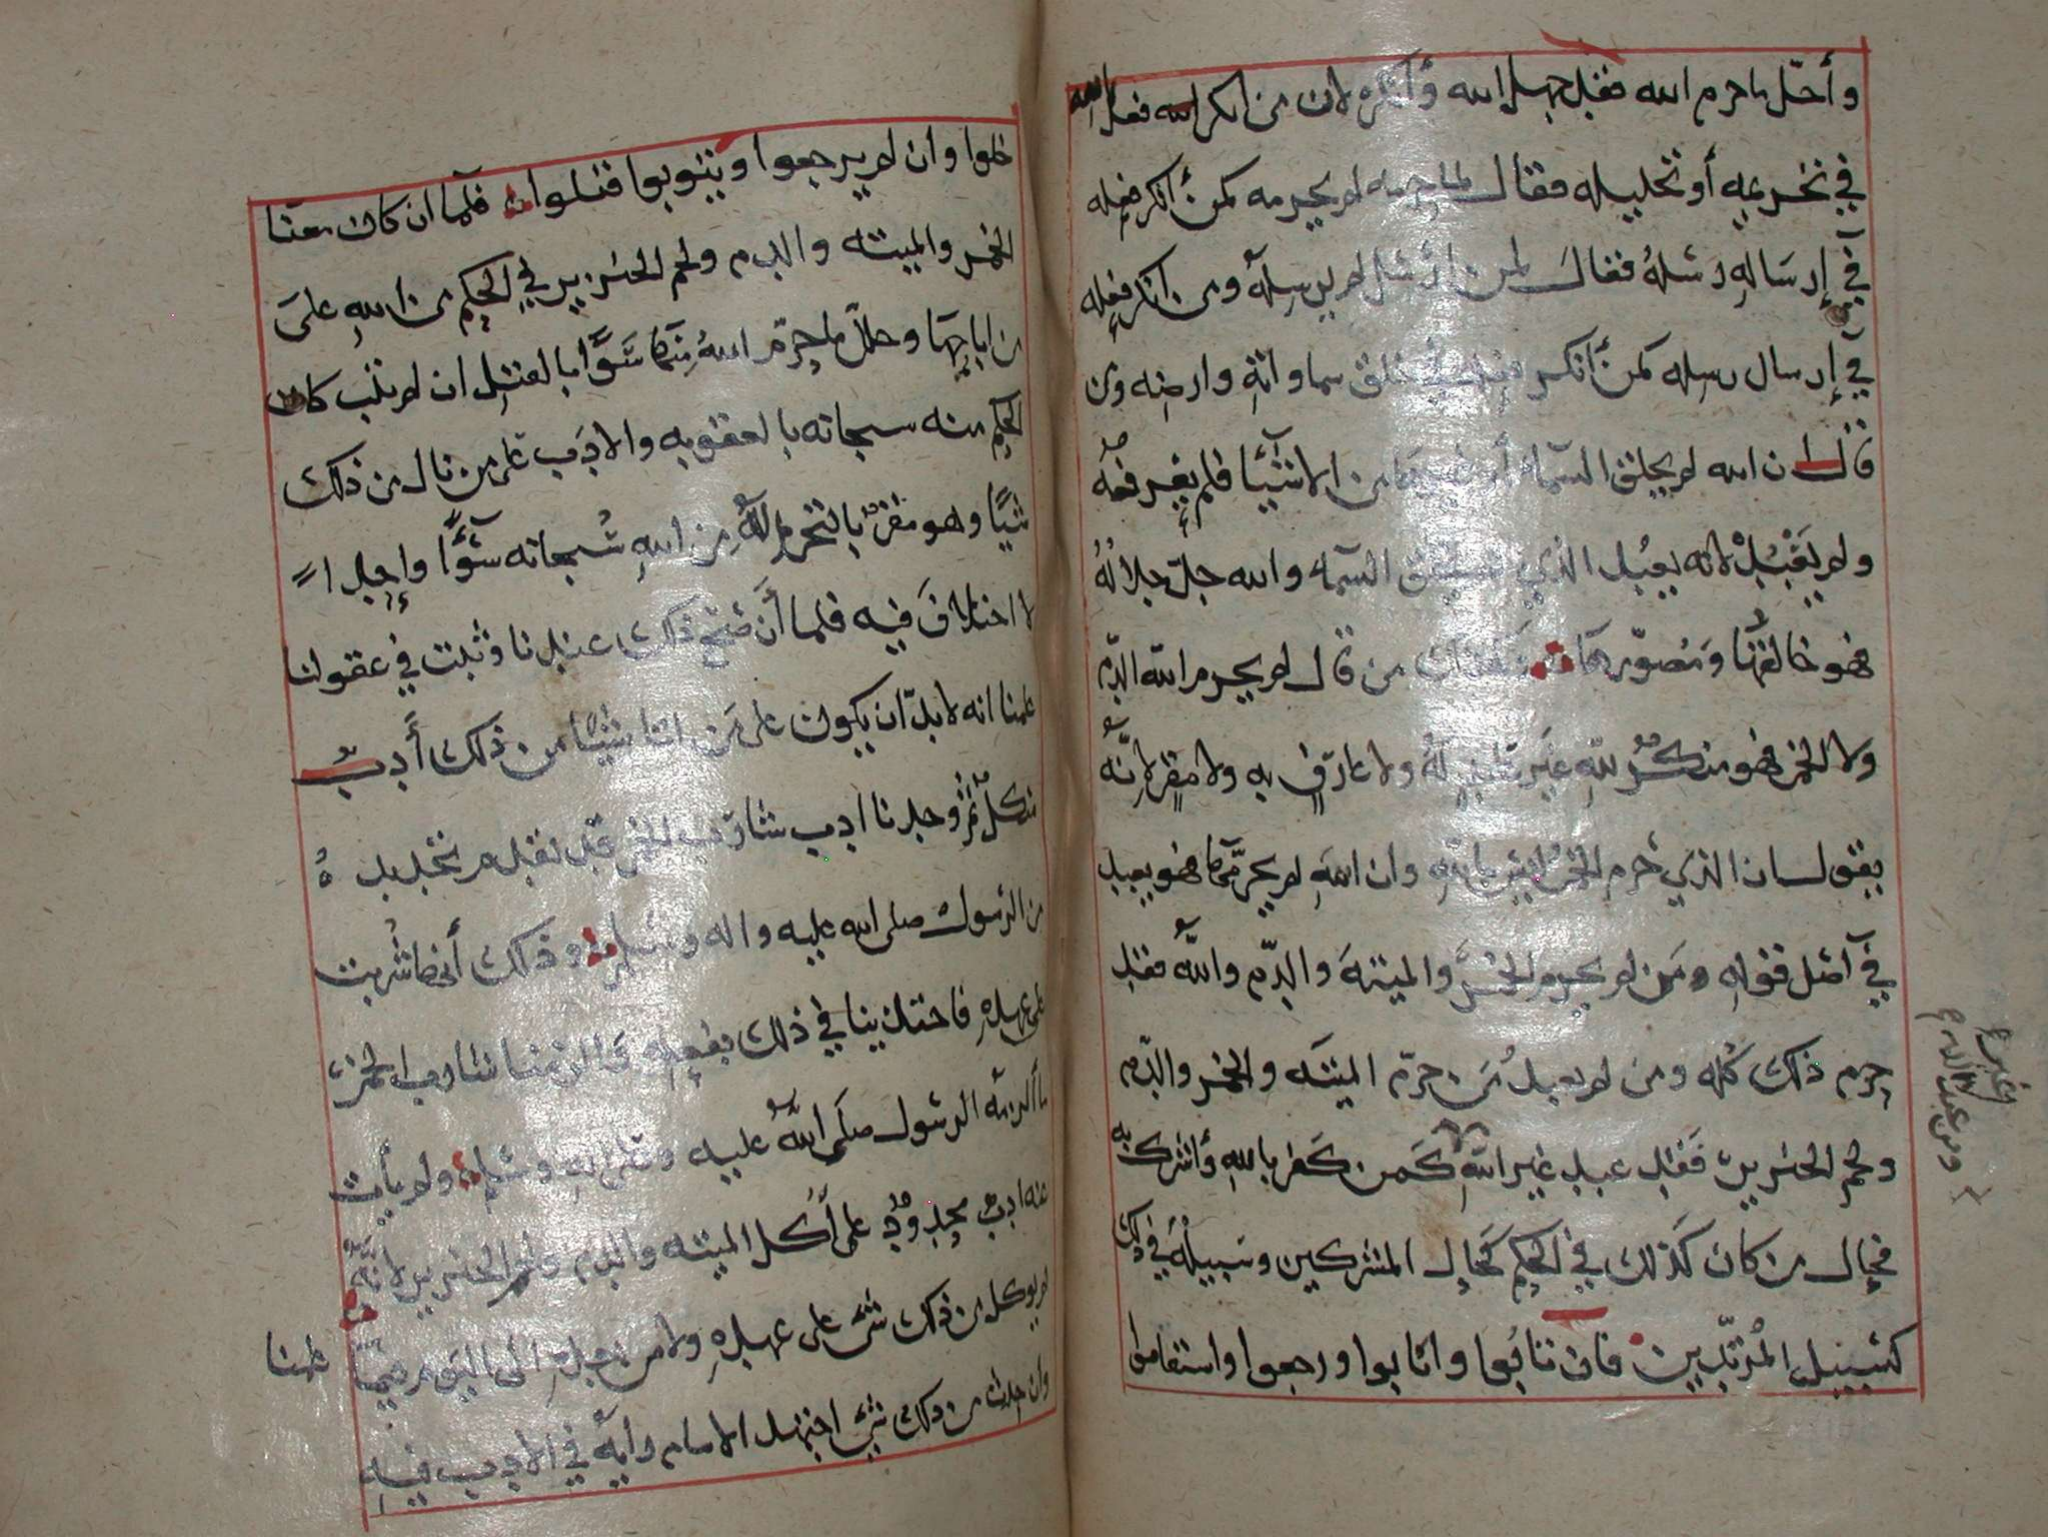 وأحلّ ما حرم الله فقد جهل الله وأنكره لان من انكر الله فعل الله
في تحريمه أو تحليله فقال لما حرمه لم يحرمه كمن أنكر فعله
في إرسَالهِ رسُلهُ فقالَ لمن ارسُل لم يرسِله ومن انكر فعِله
في إرسال رسله كمن أنكر فعله في خلق سماواتهِ وارضِه ومن
قال ان الله لم يخلق السمآء أو غيرها من الاشيَآء فلم يعرفهُ
ولم يَعْبُدْهُ لانه يعبُد الذي لم يخلق السمآء والله جلّ جلالهُ
فهو خالقهُا وَمُصوّرها فكذلك من قال لم يحرم الله الدّم
ولا الخمر فهو منكرٌ للهِ غيَر عابدٍ لهُ ولا عارفٍ به ولا مقِرٍ لانّهُ
يقول ان الذي حَرم الخمرَ ليس باللهِ وان اللهَ لم يحرّمهَا فهو يعبد
في أصل قولهِ مَن لم يحرم الخمرَ والميتهَ والدّم واللهُ فقد
حرم ذلك كُله ومن لم يعبدْ مَن حرّم الميتَه والخمر والدّم
ولحم الخنزير فَقد عبد غير اللهِ كَمن كَفر باللهِ وأشرك به
فحال من كان كذلك في الحكم كَحال المشركين وسَبيلهُ في ذلك
كسَبيل المُرتدّين فان تابُوا وانابوا ورجعوا واستقاموا
ومن عبد
خلوا وان لم يرجعوا ويتوبوا قتلوا فلمّا ان كان معنا
الخمر والميته والدم ولحم الخنزير في الحكم من اللهِ علىَ
من اباحهَا وحلّل ما حرّم اللهُ منهَا سَوَآءً بالقتل ان لم يتب كان
الحكم منه سبحانه بالعقوبه والادَب على من نال من ذلك
شيًا وهو مقرٌ بالتحريم لهُ من اللهِ سُبحانه سَوآءً واحِداً
لا اختلافَ فيه فلما أنَ صَح ذلك عندنا وثبت في عقولنا
علمنا انه لا بدّ ان يكون على مَن اتا شيًا من ذلك أَدبٌ
منكلٌ ثم وجدنا ادب شارب الخمر قد تقدم تحديده
من الرسول صلى الله عليه واله وسلم وذلك أنها شُربت
على عهدهِ فاحتذينا في ذلك بفعِله والزمنا شارب الخمر
ما ألزمه الرسول صلىَ اللهُ عليه وعلى اله وسلم ولم يأت
عنه ادبٌ محدودٌ على أكل الميته والدم ولحم الخنزير لانّهُ
لم يوكل من ذلك شئ على عهدهِ ولا من بعدِهِ الى اليوم
وان حدث من ذلك شئ اجتهد الامام رأيهُ في الادب فيهِ